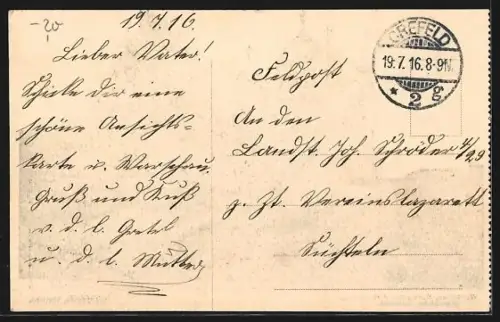 -20
19.7.16.
Lieber Vater!
Schicke dir eine
schöne Ansichts-
karte v. Warschau.
Gruß und Kuß
v. d. l. Gretel
u. d. l. Mutter
CREFELD
19.7.16.8-9N.
* 2 g
Feldpost
An den
Landst. Joh. Schröder 4/29
z. Zt. Vereinslazarett
Süchteln